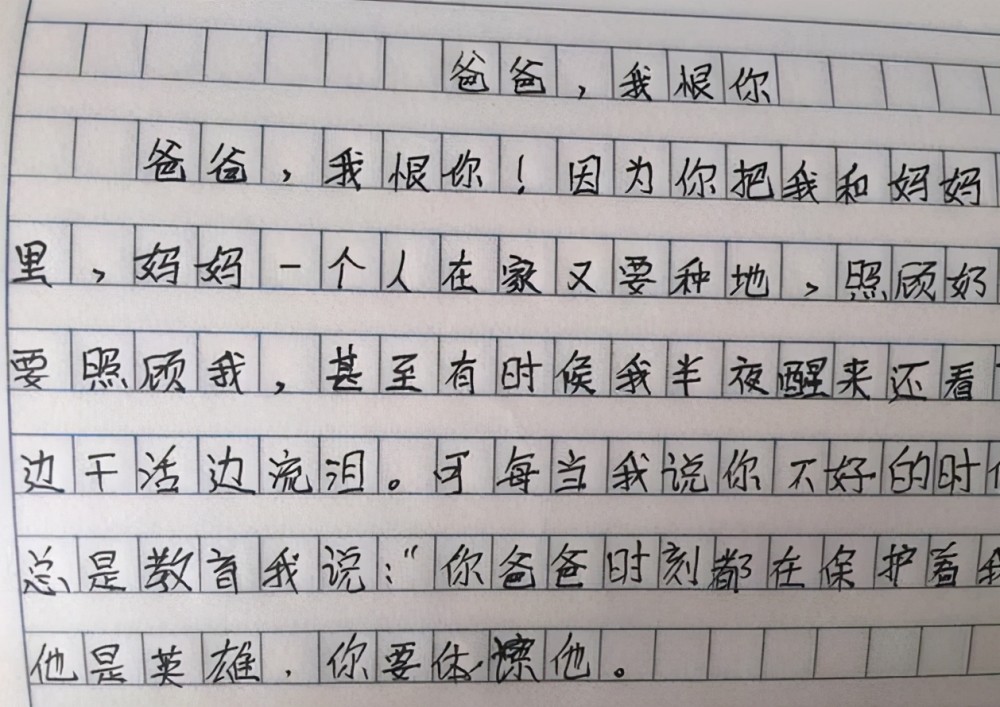 爸爸，我恨你
爸爸，我恨你！因为你把我和妈妈
里，妈妈一个人在家又要种地，照顾奶
要照顾我，甚至有时候我半夜醒来还看
边干活边流泪。可每当我说你不好的时
总是教育我说：“你爸爸时刻都在保护着我
他是英雄，你要体谅他。